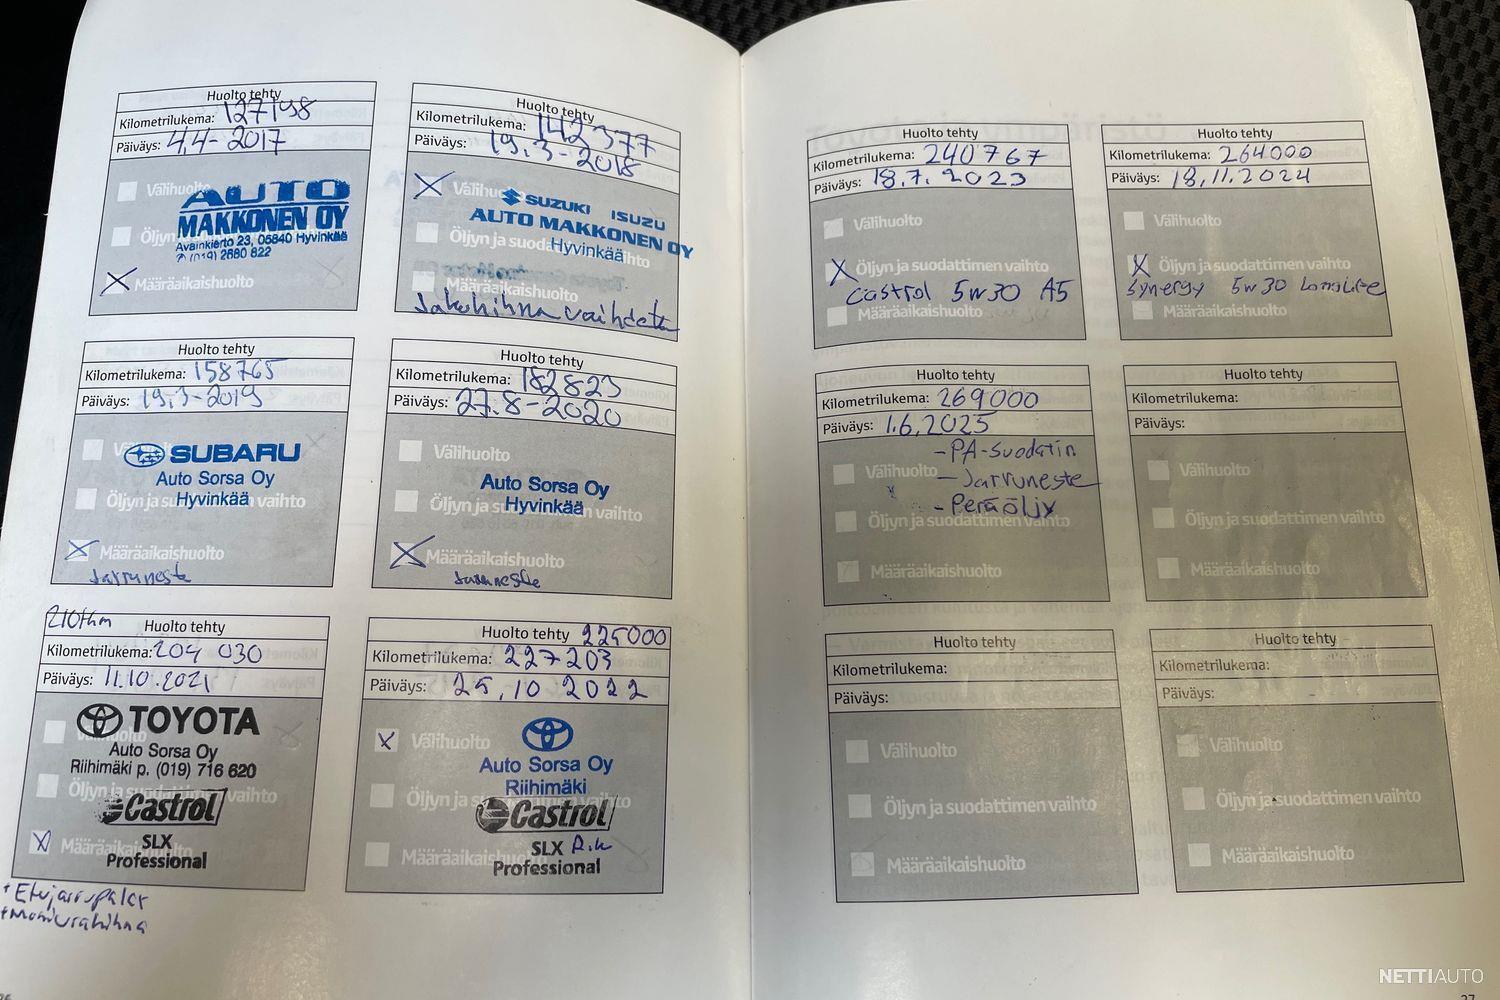 Huolto tehty
Kilometrilukema: 127198
Päiväys: 4.4-2017
Välihuolto
AUTO
MAKKONEN OY
Öljyn ja
Avainkierto 23, 05840 Hyvinkää
(019) 2680 822
X Määräaikaishuolto
Huolto tehty
Kilometrilukema: 142377
Päiväys: 19.3-2018
X Välihuolto
SUZUKI ISUZU
AUTO MAKKONEN OY
Öljyn ja suodattimen vaihto
Hyvinkää
Määräaikaishuolto
Jakohihna vaihdettu
Huolto tehty
Kilometrilukema: 158765
Päiväys: 19.3-2019
SUBARU
Auto Sorsa Oy
Öljyn ja suodattimen vaihto
Hyvinkää
X Määräaikaishuolto
Jarruneste
Huolto tehty
Kilometrilukema: 182823
Päiväys: 27.8-2020
Välihuolto
Auto Sorsa Oy
Öljyn ja suodattimen vaihto
Hyvinkää
X Määräaikaishuolto
Jarruneste
210tkm Huolto tehty
Kilometrilukema: 204 030
Päiväys: 11.10.2021
TOYOTA
Välihuolto
Auto Sorsa Oy
Riihimäki p. (019) 716 620
Öljyn ja suodattimen vaihto
Castrol
SLX
X Määräaikaishuolto
Professional
+ Etujarrupalat
+ Moniurahihna
Huolto tehty 225000
Kilometrilukema: 227 203
Päiväys: 25.10 2022
X Välihuolto
Auto Sorsa Oy
Riihimäki
Öljyn ja suodattimen vaihto
Castrol
SLX
Määräaikaishuolto
Professional
Huolto tehty
Kilometrilukema: 240767
Päiväys: 18.7.2023
Välihuolto
X Öljyn ja suodattimen vaihto
Castrol 5w30 A5
Määräaikaishuolto
Huolto tehty
Kilometrilukema: 264000
Päiväys: 18.11.2024
Välihuolto
X Öljyn ja suodattimen vaihto
Synergy 5w30 Longlife
Määräaikaishuolto
Huolto tehty
Kilometrilukema: 269000
Päiväys: 1.6.2025
- PA-suodatin
Välihuolto
- Jarruneste
- Peräöljy
Öljyn ja suodattimen vaihto
Määräaikaishuolto
Huolto tehty
Kilometrilukema:
Päiväys:
Välihuolto
Öljyn ja suodattimen vaihto
Määräaikaishuolto
Huolto tehty
Kilometrilukema:
Päiväys:
Välihuolto
Öljyn ja suodattimen vaihto
Määräaikaishuolto
Huolto tehty
Kilometrilukema:
Päiväys:
Välihuolto
Öljyn ja suodattimen vaihto
Määräaikaishuolto
NETTIAUTO